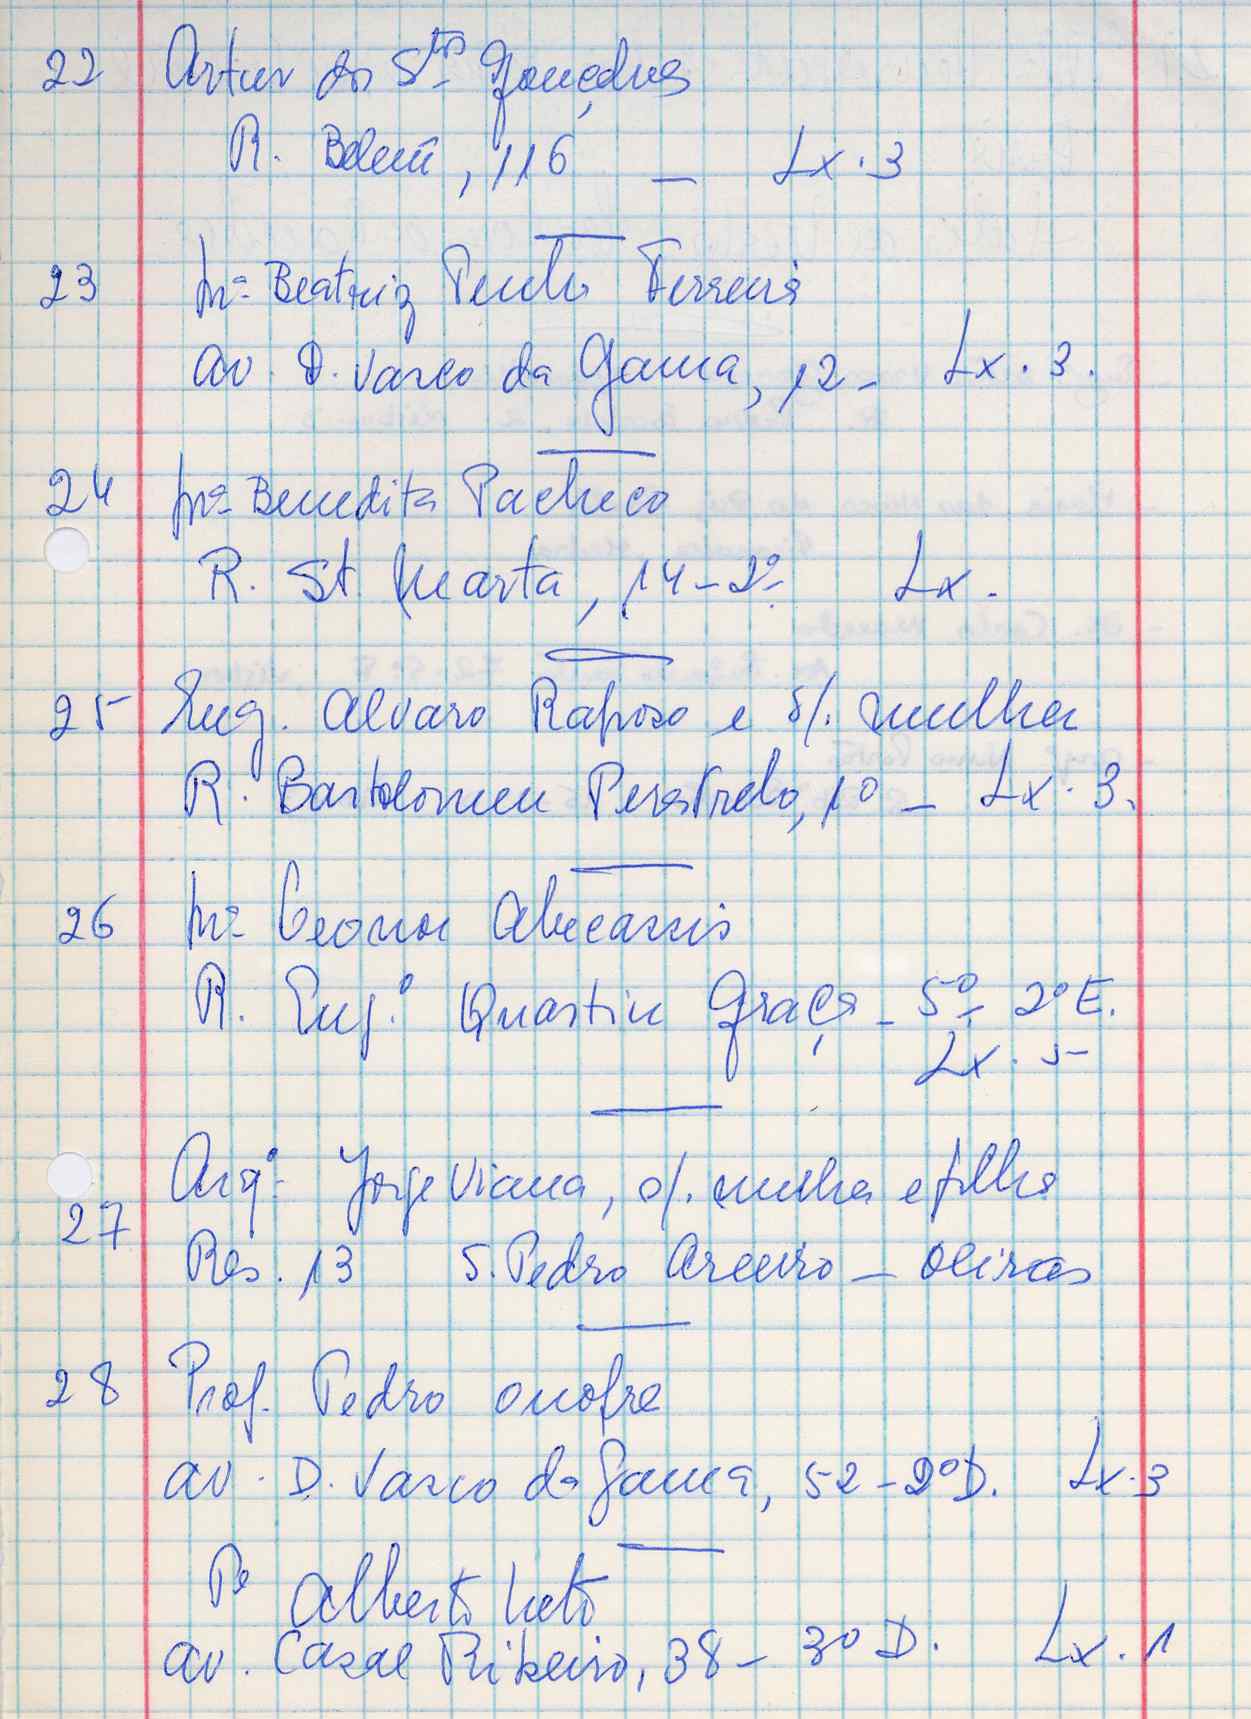 22 Artur dos Stos Gonçalves
R. Belem, 116 — Lx. 3
23 Mª Beatriz Penha Ferreira
Av. D. Vasco da Gama, 12 - Lx. 3.
24 Mª Benedita Pacheco
R. St. Marta, 14-2º Lx.
25 Eng. Alvaro Raposo e s/. mulher
R. Bartolomeu Perestrelo, 10 — Lx. 3.
26 Mª Leonor Abecassis
R. Engº. Quartin Graça - 5º- 2º E.
Lx. 5
Arqº. Jorge Viana, s/. mulher e filho
27
Res. 13 S. Pedro Areeiro — Oeiras
28 Prof. Pedro Onofre
Av. D. Vasco da Gama, 52-2º D. Lx. 3
Pe Alberto Neto
Av. Casal Ribeiro, 38 - 3º D. Lx. 1